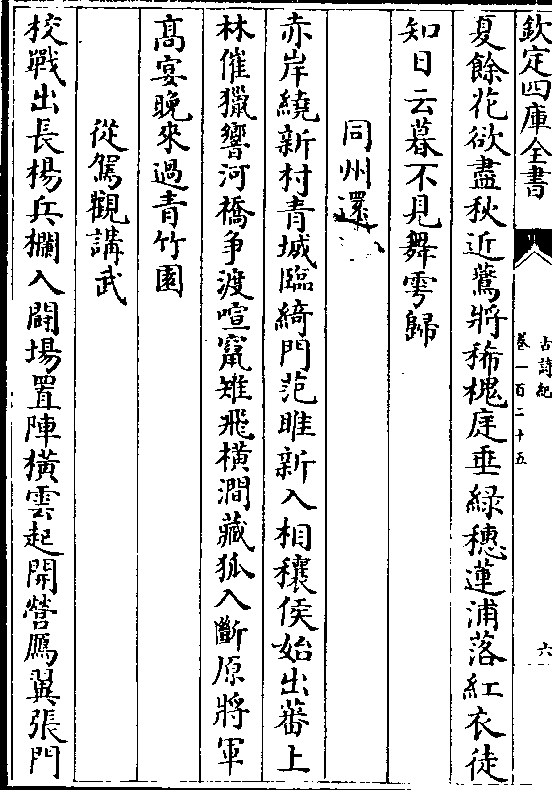 欽定四庫全書
古詩紀
卷一百二十五
六
夏餘花欲盡秋近鷰將稀槐庭垂緑穗蓮浦落紅衣徒
知日云暮不見舞雩歸
同州還
赤岸繞新村青城臨綺門范睢新入相穰侯始出蕃上
林催獵響河橋争渡喧竄雉飛横澗藏狐入斷原將軍
髙宴晩來過青竹園
從駕觀講武
校戰出長楊兵欄入鬭場置陣横雲起開營鴈翼張門